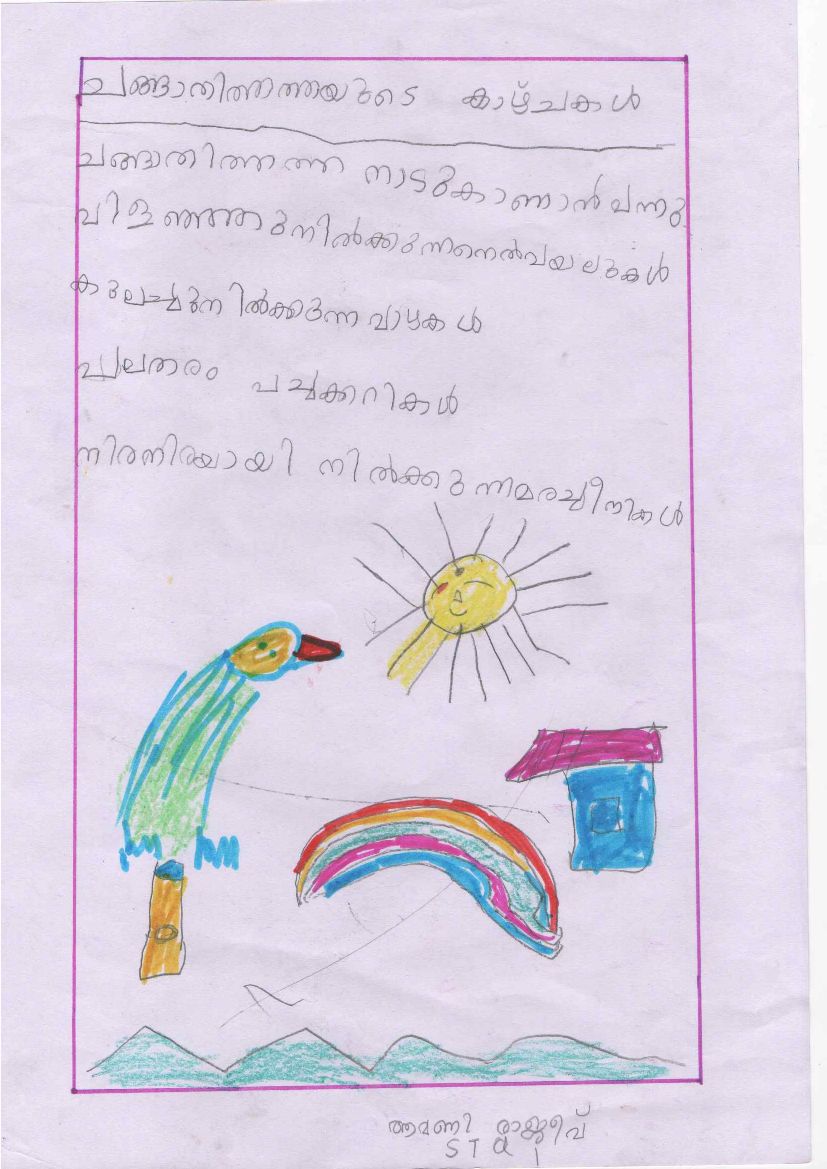 ചങ്ങാതിത്തത്തയുടെ കാഴ്ചകൾ
ചങ്ങാതിത്തത്ത നാടുകാണാൻ വന്നു
വിളഞ്ഞുനിൽക്കുന്നനെൽവയലുകൾ
കുലച്ചുനിൽക്കുന്ന വാഴകൾ
പലതരം പച്ചക്കറികൾ
നിരനിരയായി നിൽക്കുന്ന മരച്ചീനികൾ
ആവണി രാജീവ്
STD 1